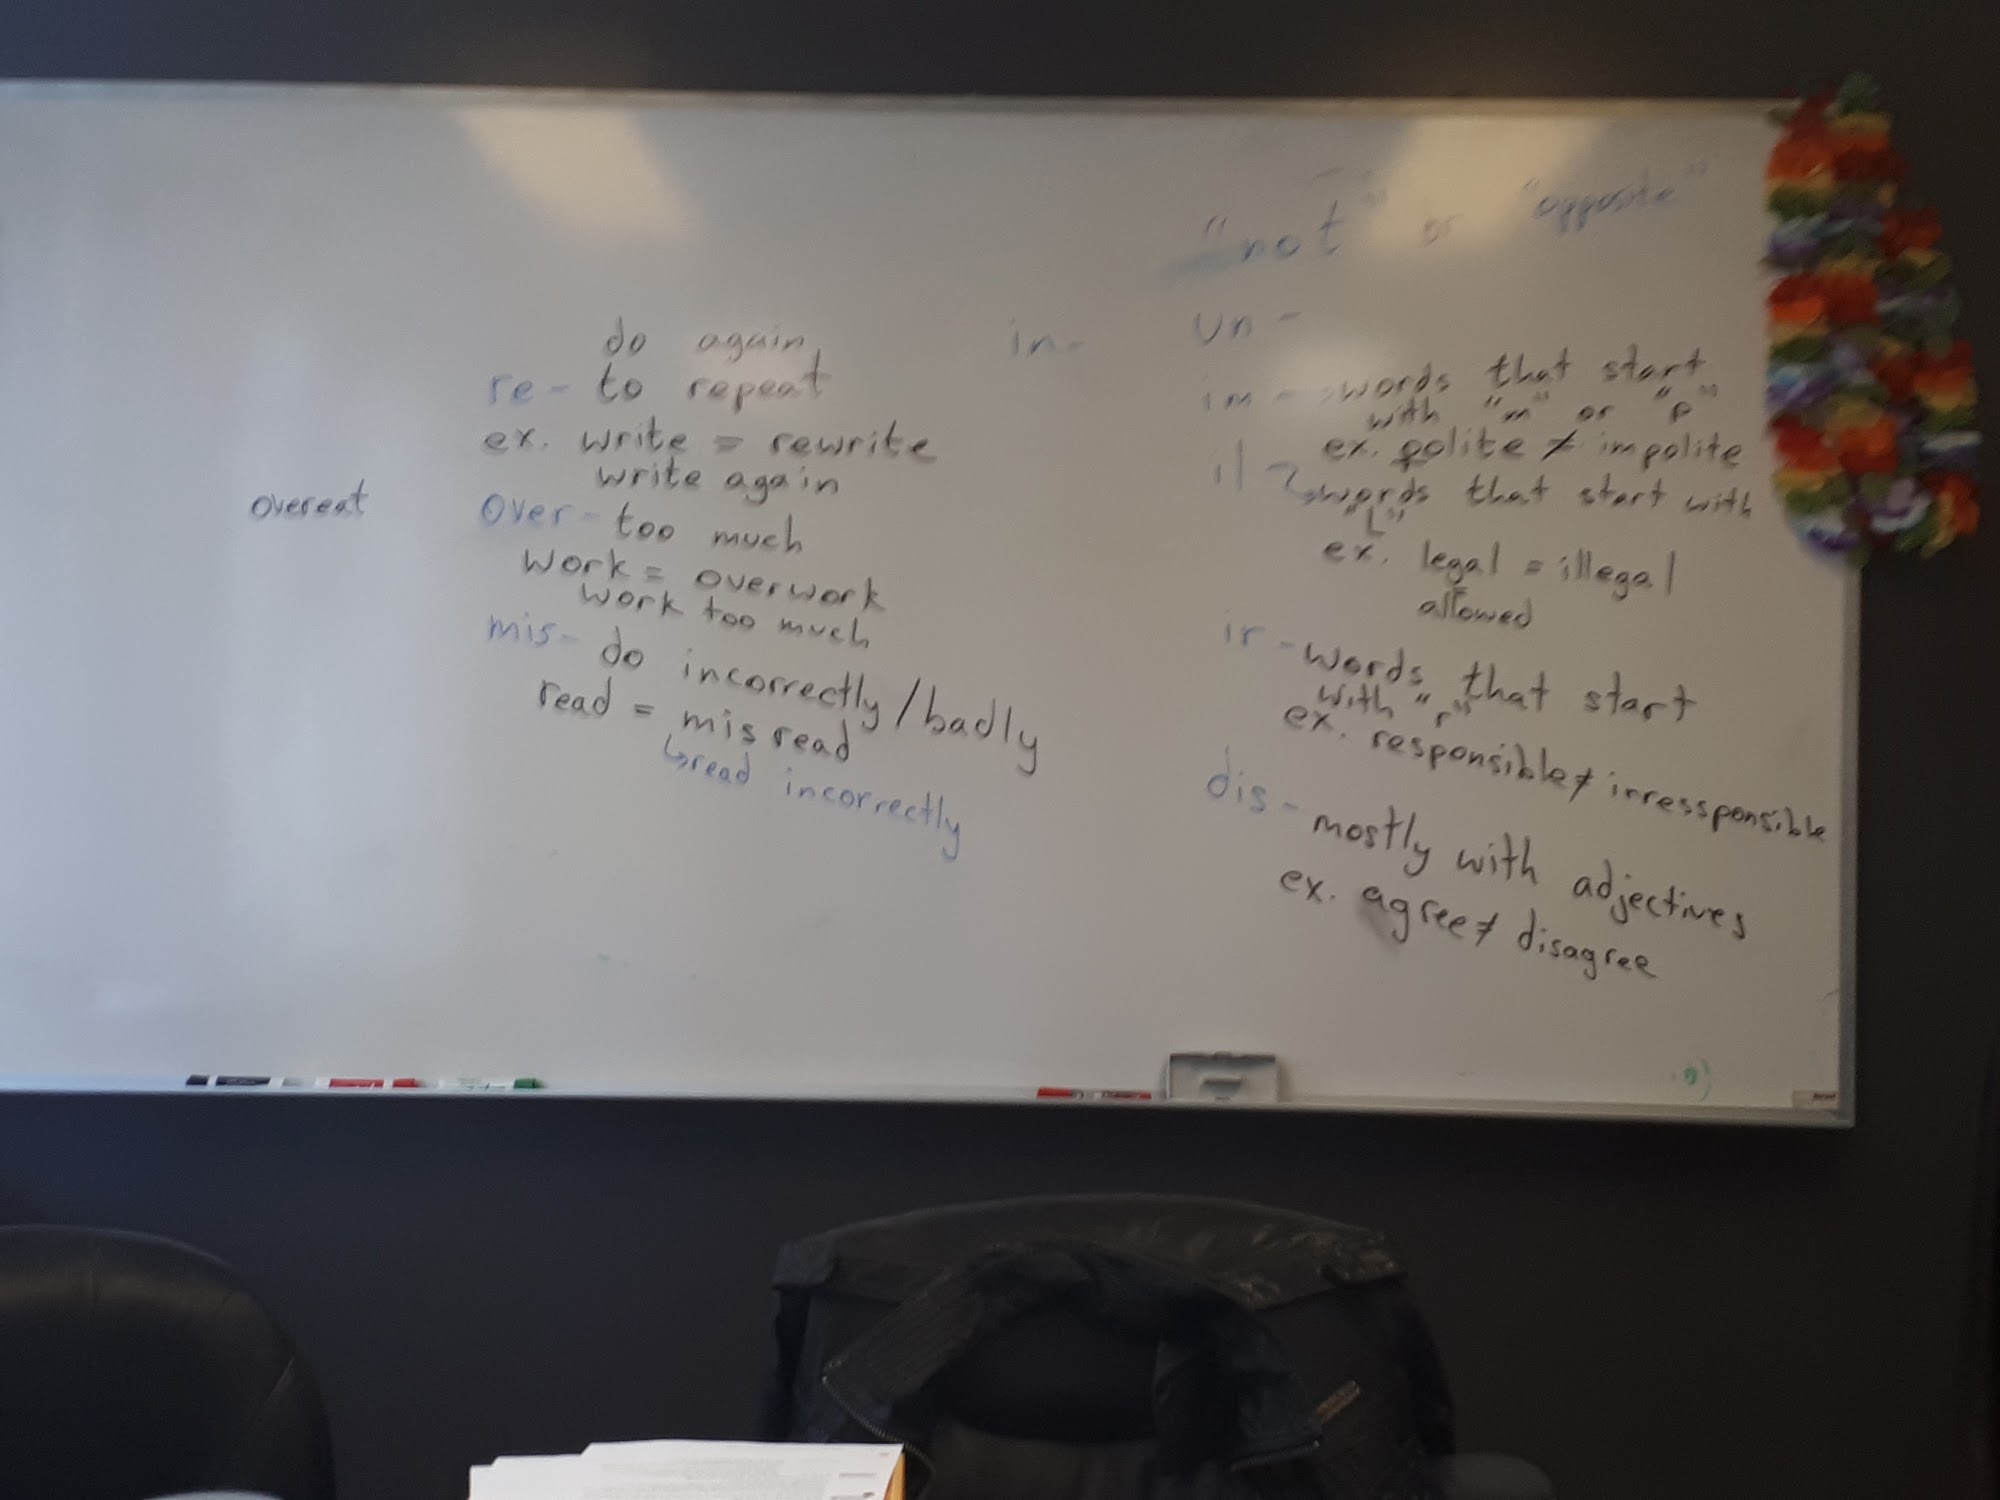 "not" or "opposite"
do again
re- to repeat
ex. write = rewrite
write again
overeat
over- too much
work = overwork
work too much
mis- do incorrectly/badly
read = misread
↳read incorrectly
in-
un-
im -> words that start
with "m" or "p"
ex. polite ≠ impolite
il -> words that start with
"L"
ex. legal = illegal
allowed
ir - words that start
with "r"
ex. responsible ≠ irressponsible
dis- mostly with adjectives
ex. agree ≠ disagree